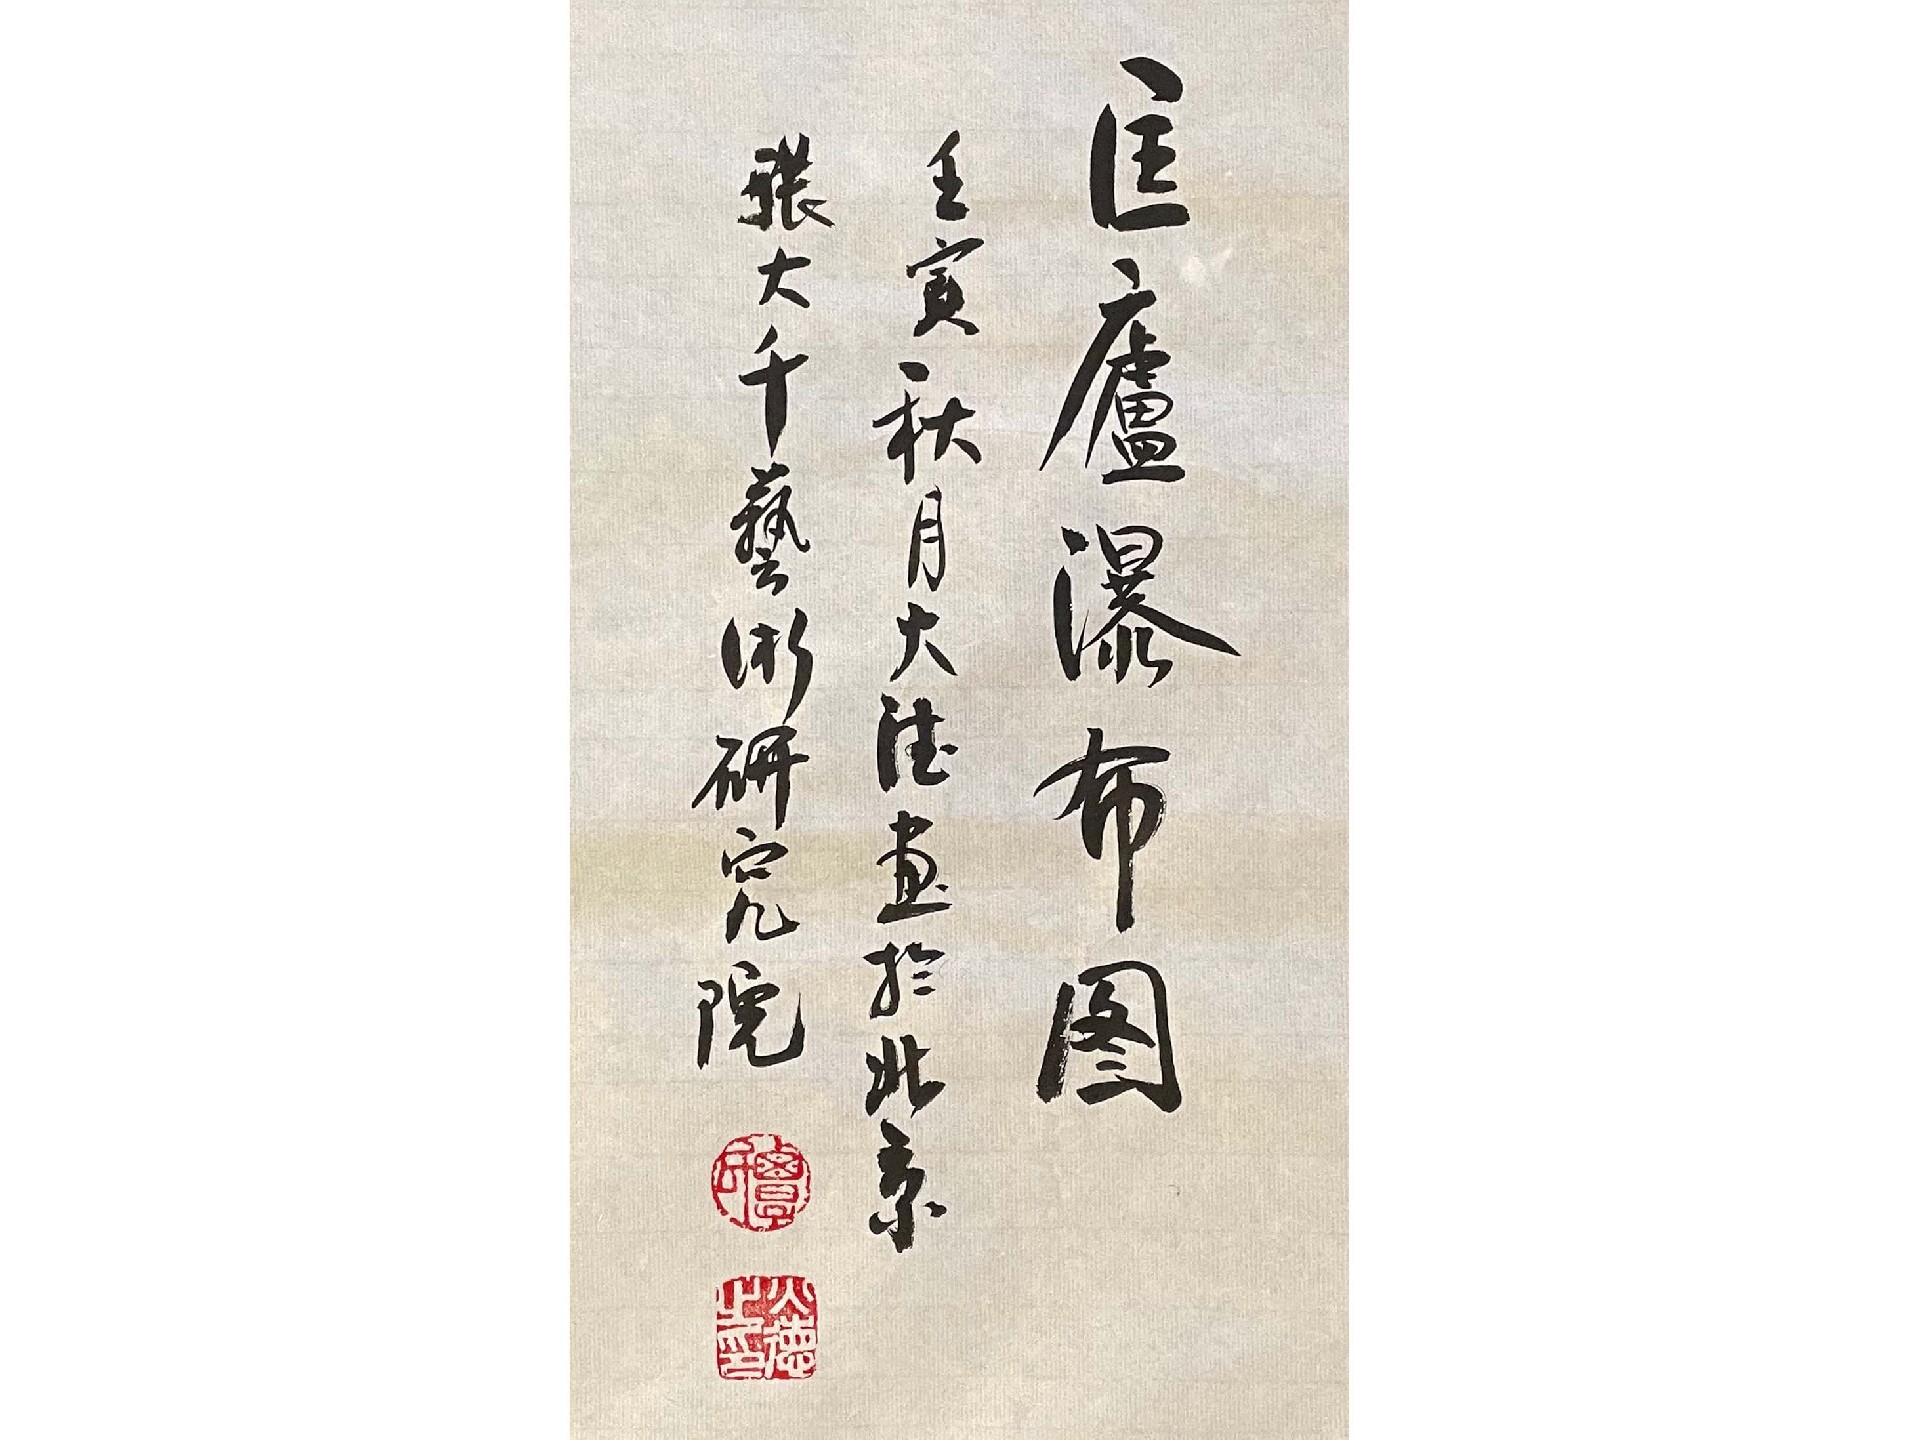 匡廬瀑布图
壬寅秋月大德畫於北京
張大千藝術研究院
大德之印